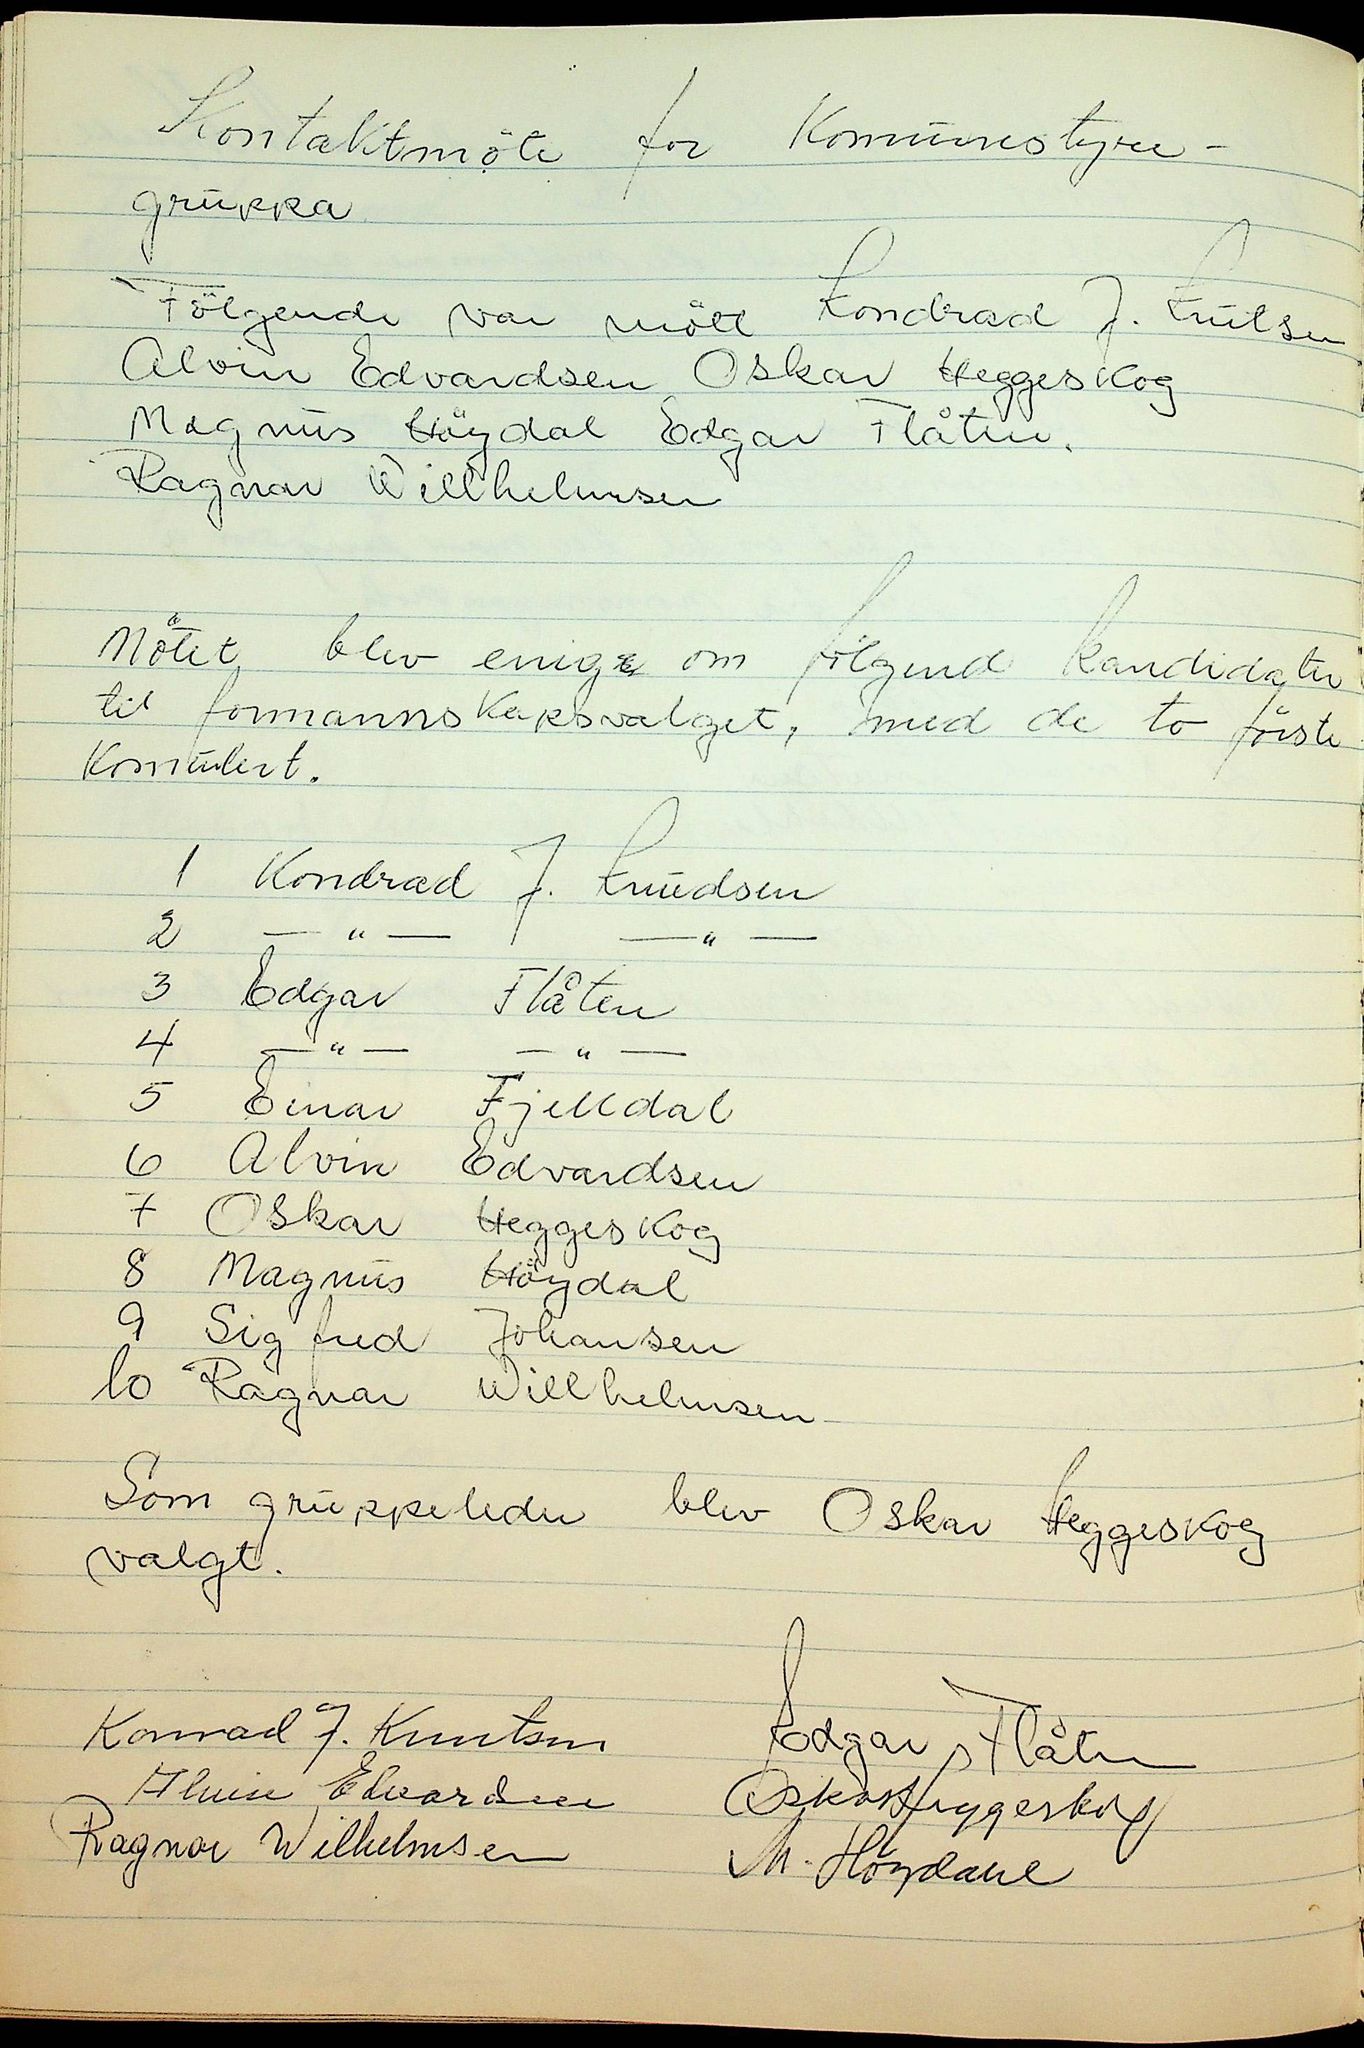 Kontaktmöte for Komunestyre-
gruppa
Følgende var mött Kondrad J. Knutsen
Alvin Edvardsen Oskar Heggeskog
Magnus Höydal Edgar Flåten.
Ragnar Willhelmsen
Mötet blev enige om følgend kandidater
til formannskapsvalget, med de to förste
Komulert.
1 Kondrad J. Knudsen
2 —"— —"—
3 Edgar Flåten
4 —"— —"—
5 Einar Fjelldal
6 Alvin Edvardsen
7 Oskar Heggeskog
8 Magnus Höydal
9 Sigfred Johansen
10 Ragnar Willhelmsen
Som gruppeleder blev Oskar Heggeskog
valgt.
Konrad J. Knutsen Edgar Flåten
Alvin Edvardsen Oskar Heggeskog
Ragnar Wilhelmsen M. Høydahl